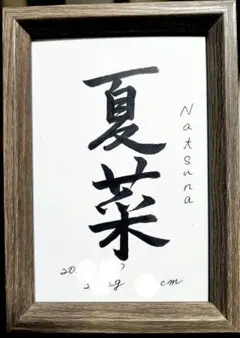 夏菜
Natsuna
20. 7
2 2g cm